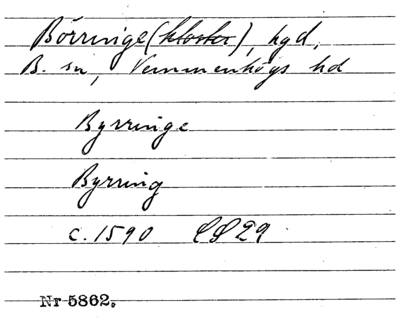 Börringe (kloster), hgd,
B. sn, Vemmenhögs hd
Byrringe
Byrring
c. 1590
Nr 5862.